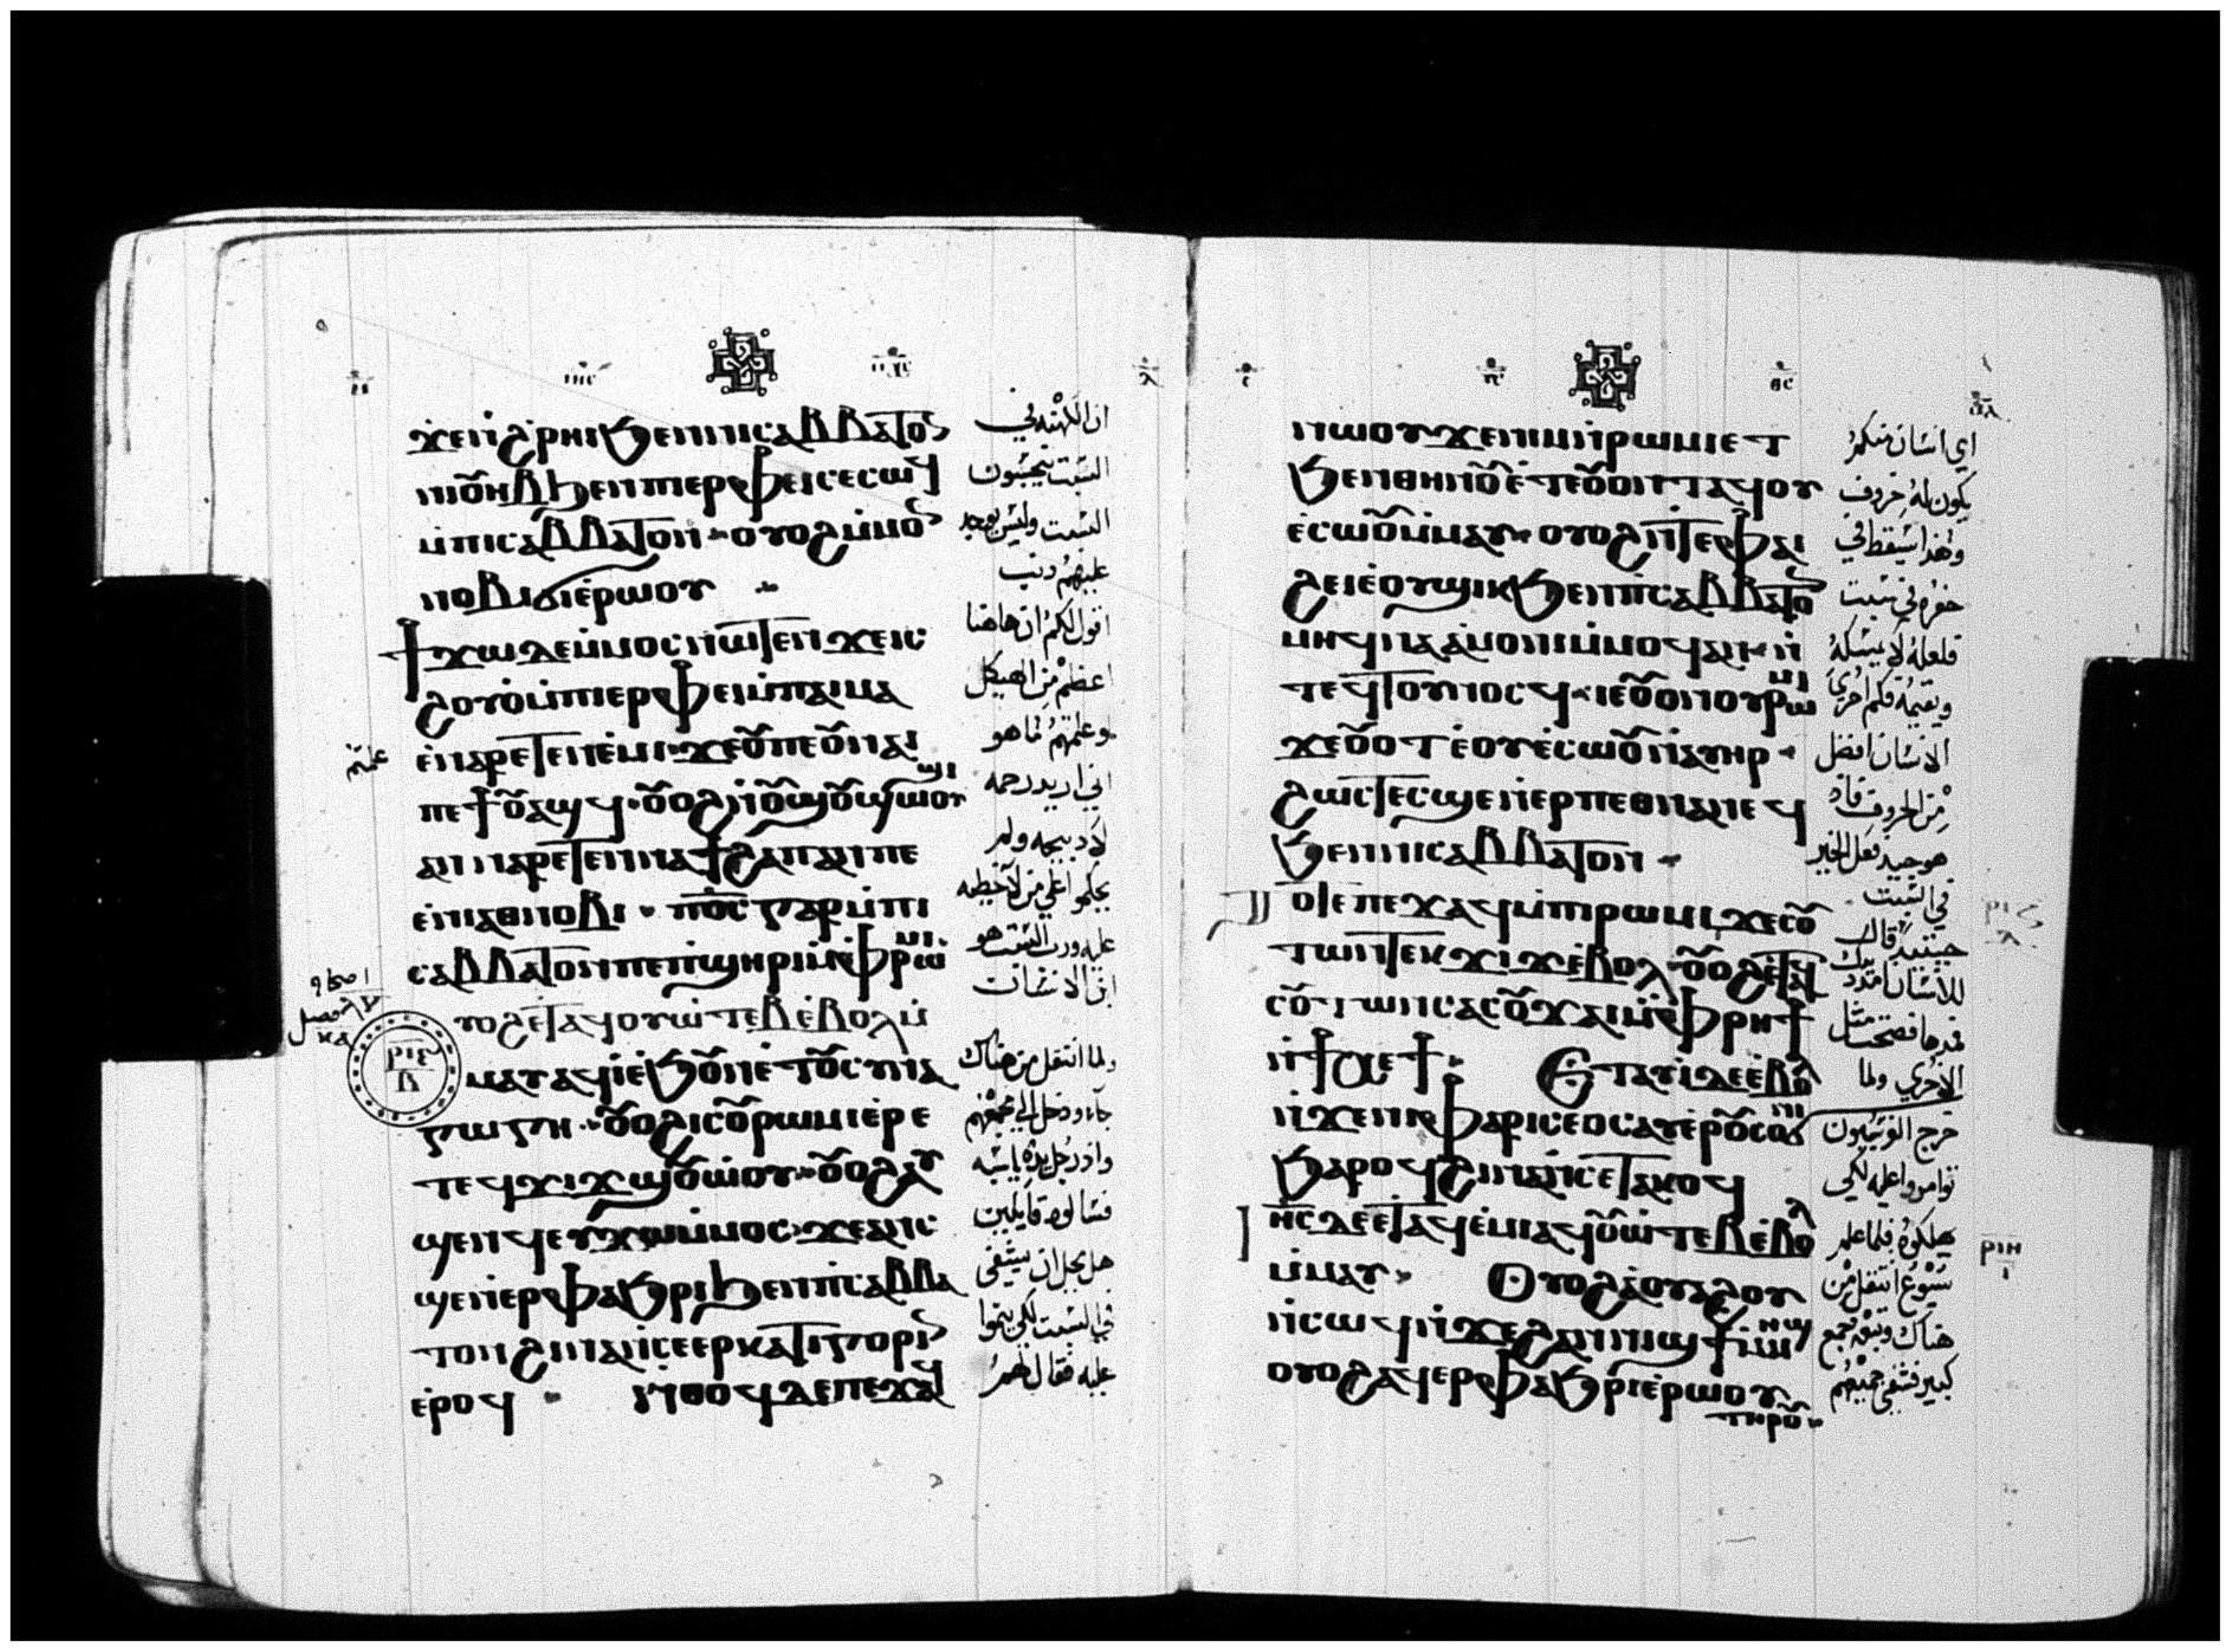 ϫⲉⲛ̀ϩⲣⲏⲓϧⲉⲛⲛⲓⲥⲁⲃⲃⲁⲧⲟⲥ
ⲛⲓⲟ̅ⲏⲃϧⲉⲛⲡⲓⲉⲣⲫⲉⲓⲥⲉⲥⲱϥ
ⲙ̀ⲡⲓⲥⲁⲃⲃⲁⲧⲟⲛ · ⲟⲩⲟϩⲙ̀ⲙⲟ̅
ⲛⲟⲃⲓϭⲓⲉ̀ⲣⲱⲟⲩ
ϯϫⲱⲇⲉⲙ̀ⲙⲟⲥⲛⲱⲧⲉⲛϫⲉⲓⲥ
ϩⲟⲩⲟ̀ⲙ̀ⲡⲓⲉⲣⲫⲉⲓⲙ̀ⲡⲁⲓⲙⲁ
ⲉ̀ⲛⲁⲣⲉⲧⲉⲛⲉ̀ⲙⲓ · ϫⲉⲟ̅ⲡⲉⲟ̅ⲛⲁⲓ
ⲡⲉϯⲟ̅ⲁϣϥ · ⲟ̅ⲟϩⲛ̀ⲟ̅ϣⲟ̅ϣⲱⲟⲩϣⲓ
ⲁⲛⲛⲁⲣⲉⲧⲉⲛⲛⲁϯϩⲁⲡⲁⲛⲡⲉ
ⲉ̀ⲛⲓⲁⲑⲛⲟⲃⲓ · ⲡⲟ̅ⲥⲅⲁⲣⲙ̀ⲡⲓ
ⲥⲁⲃⲃⲁⲧⲟⲛⲡⲉⲡϣⲏⲣⲓⲙ̀ⲫⲣⲱⲙⲓ
ⲩⲟϩⲉ̀ⲧⲁϥⲟⲩⲱ̀ⲧⲉⲃⲉ̀ⲃⲟⲗⲙ̀
ⲙⲁⲩⲁϥⲓ̀ⲉ̀ϧⲟ̅ⲛⲉ̀ⲧⲟ̅ⲥⲩⲛⲁ
ⲅⲱⲅⲏ · ⲟ̅ⲟϩⲓⲥⲟ̅ⲣⲱⲙⲓⲉ̀ⲣⲉ
ⲧⲉϥϫⲓϫϣⲟ̅ⲱ̀ⲟⲩ · ⲟ̅ⲟϩⲁⲩ
ϣⲉⲛϥⲉⲩϫⲱⲙ̀ⲙⲟⲥ · ϫⲉⲁⲛⲥ
ϣⲉⲛ̀ⲉⲣⲫⲁϧⲣⲓϧⲉⲛⲡⲓⲥⲁⲃⲃⲁ
ⲧⲟⲛϩⲓⲛⲁⲛ̀ⲥⲉⲉⲣⲕⲁⲧⲓⲅⲟⲣⲓⲛ
ⲉ̀ⲣⲟϥ · ⲛ̀ⲑⲟϥⲇⲉⲡⲉϫⲁϥ
ⲣⲓⲍ
ⲃ
ان الكهنه في
السبت ينجسون
السبت وليس يوجد
عليهم ذنب
اقول لكم ان هاهنا
اعظم من الهيكل
لو علمتم ما هو
اني اريد رحمه
لا ذبيحه ولم
تحكموا على من لا خطيه
عليه ورب السبت هو
ابن الانسان
ولما انتقل من هناك
جاء ودخل الى مجمعهم
واذ رجل يده يابسه
فسالوه قايلين
هل يحل ان يشفى
في السبت لكي ينموا
عليه فقال لهم
ⲛⲱⲟⲩϫⲉⲛⲓⲙⲛ̀ⲣⲱⲙⲓⲉⲧ
ϧⲉⲛⲑⲏⲛⲟ̅ⲉ̀ⲧⲉⲟ̅ⲟⲛⲧⲁϥⲟⲩ
ⲉ̀ⲥⲱⲟ̅ⲙ̀ⲙⲁⲩ · ⲟⲩⲟϩⲛ̀ⲧⲉⲫⲁⲓ
ϩⲉⲓⲉ̀ⲟⲩϣⲓⲕϧⲉⲛⲡⲓⲥⲁⲃⲃⲁⲧⲟ̅
ⲙⲏϥⲛⲁⲁ̀ⲙⲟⲛⲓⲙ̀ⲙⲟϥⲁⲛⲛ̀
ⲧⲉϥⲧⲟⲩⲛⲟⲥϥ · ⲓⲉⲟ̅ⲟⲛⲟⲩⲣⲱⲙⲓ
ϫⲉⲟ̅ⲟⲧⲉ̀ⲟⲩⲉ̀ⲥⲱⲟ̅ⲛ̀ⲁⲩⲏⲣ
ϩⲱⲥⲧⲉⲥϣⲉⲛ̀ⲉⲣⲡⲉⲑⲛⲁⲛⲉϥ
ϧⲉⲛⲛⲓⲥⲁⲃⲃⲁⲧⲟⲛ
ⲧⲟⲧⲉⲡⲉϫⲁϥⲙ̀ⲡⲓⲣⲱⲙⲓϫⲉⲥⲟ̅
ⲧⲱⲛⲧⲉⲕϫⲓϫⲉ̀ⲃⲟⲗ · ⲟ̅ⲟϩⲉ̀ⲧⲁϥ
ⲥⲟ̅ⲧⲱⲛⲥⲁⲥⲟ̅ϫⲁⲓⲙ̀ⲫⲣⲏϯ
ⲛ̀ϯⲭⲉϯ · Ⲉⲧⲁⲩⲓ̀ⲇⲉⲉ̀ⲃⲟⲗ
ⲛ̀ϫⲉⲛⲓⲫⲁⲣⲓⲥⲉⲟⲥⲁⲩⲉⲣⲟ̅ⲥⲟϭⲛⲓ
ϧⲁⲣⲟϥϩⲓⲛⲁⲛ̀ⲥⲉⲧⲁⲕⲟϥ
ⲓⲏ̅ⲥ̅ⲇⲉⲉⲧⲁϥⲉ̀ⲙⲓⲁϥⲟ̅ⲱ̀ⲧⲉⲃⲉ̀ⲃⲟⲗ
ⲙ̀ⲙⲁⲩ · Ⲟⲩⲟϩⲁⲩⲟⲩⲁϩⲟⲩ
ⲛ̀ⲥⲱϥⲛ̀ϫⲉϩⲁⲛⲛⲓϣϯⲙ̀ⲙⲏϣ
ⲟⲩⲟϩⲁϥⲉⲣⲫⲁϧⲣⲓⲉ̀ⲣⲱⲟⲩ
ⲧⲏⲣⲟ̅
اي انسان منكم
يكون له خروف
وهذا يسقط في
حفره في سبت
فلعله لا يمسكه
ويقيمه فكم احرى
الانسان افضل
من الخروف فاذ
هو جيد فعل الخير
في السبت
حينئذ قال
للانسان امدد يدك
فمدها فصحت مثل
الاخرى ولما
خرج الفريسيون
توامروا عليه لكي
يهلكوه فلما علم
يسوع انتقل من
هناك وتبعه جمع
كبير فشفى جميعهم
ⲣⲓⲏ